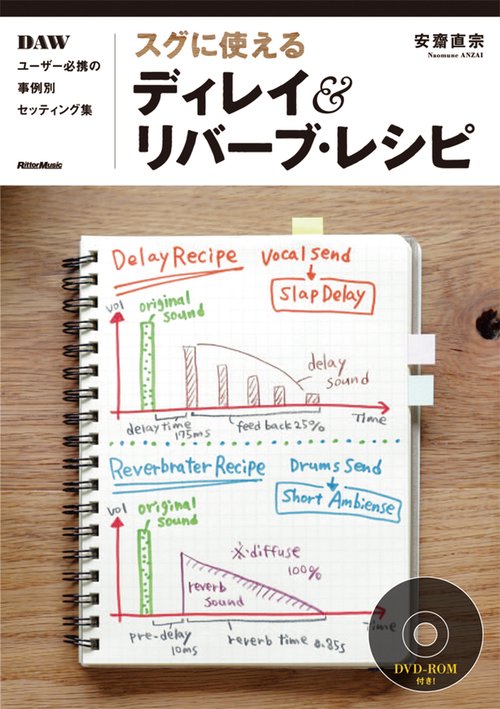 DAW
ユーザー必携の
事例別
セッティング集
RittorMusic
スグに使える
ディレイ&
リバーブ・レシピ
安齋直宗
Naomune ANZAI
Delay Recipe
Vocal Send
Slap Delay
vol
original
sound
delay
sound
delay time
175ms
feed back 25%
Time
Reverbrater Recipe
Drums Send
Short Ambiense
vol
original
sound
※diffuse
100%
reverb
sound
pre-delay
10ms
reverb time 0.85s
Time
DVD-ROM
付き!